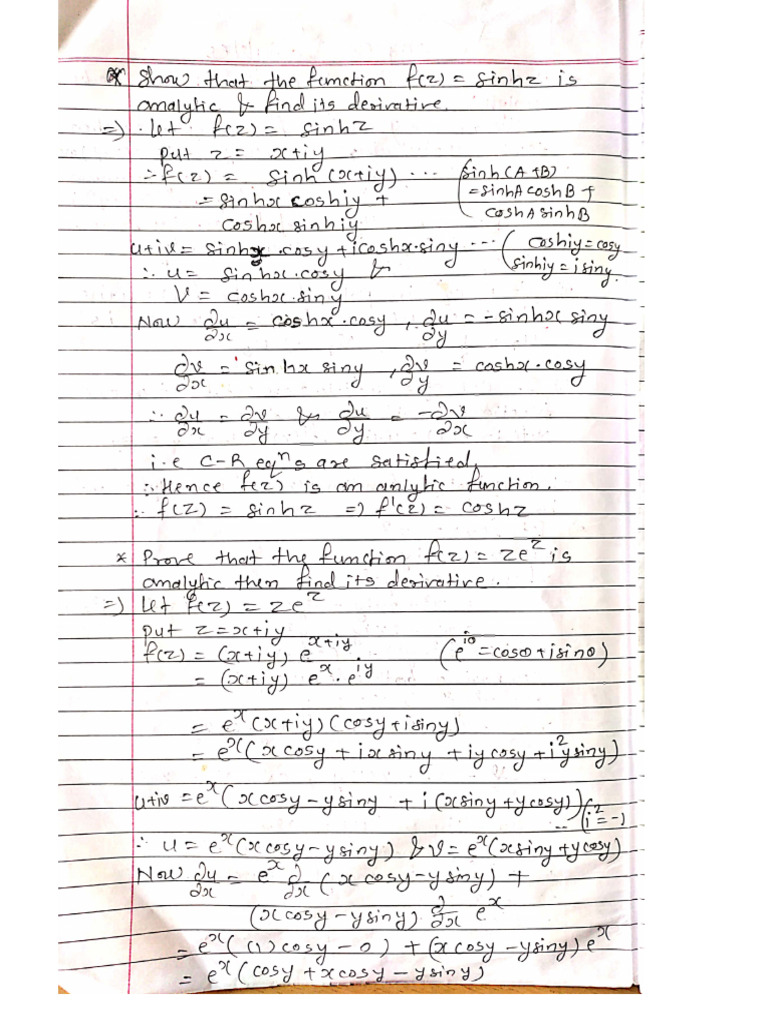 * Show that the function f(z) = sinhz is
analytic & find its derivative.
=) Let f(z) = sinhz
put z = x+iy
∴ f(z) = sinh(x+iy) ... (sinh(A+B)
= sinhx coshiy + = sinhA coshB +
coshx sinhiy coshA sinhB
u+iv = sinhx .cosy + icoshx.siny ... (coshiy = cosy
∴ u = sinhx.cosy & sinhiy = isiny.
V = coshx.siny
Now ∂u/∂x = coshx.cosy , ∂u/∂y = -sinhx siny
∂v/∂x = sinhx siny , ∂v/∂y = coshx.cosy
∴ ∂u/∂x = ∂v/∂y & ∂u/∂y = -∂v/∂x
i.e C-R eqⁿs are satisfied,
∴ Hence f(z) is an anlytic function.
∴ f(z) = sinhz =) f'(z) = coshz
* Prove that the function f(z) = ze^z is
analytic then find its derivative.
=) Let f(z) = ze^z
put z = x+iy
f(z) = (x+iy) e^x+iy (e^iθ = cosθ + isinθ)
= (x+iy) e^x . e^iy
= e^x (x+iy) (cosy + isiny)
= e^x (x cosy + ix siny + iy cosy + i²y siny)
u+iv = e^x (x cosy - y siny + i (x siny + y cosy)) ... (i² = -1
∴ u = e^x (x cosy - y siny) & V = e^x (x siny + y cosy)
Now ∂u/∂x = e^x ∂/∂x (x cosy - y siny) +
(x cosy - y siny) ∂/∂x e^x
= e^x ((1) cosy - 0) + (x cosy - y siny) e^x
= e^x (cosy + x cosy - y siny)